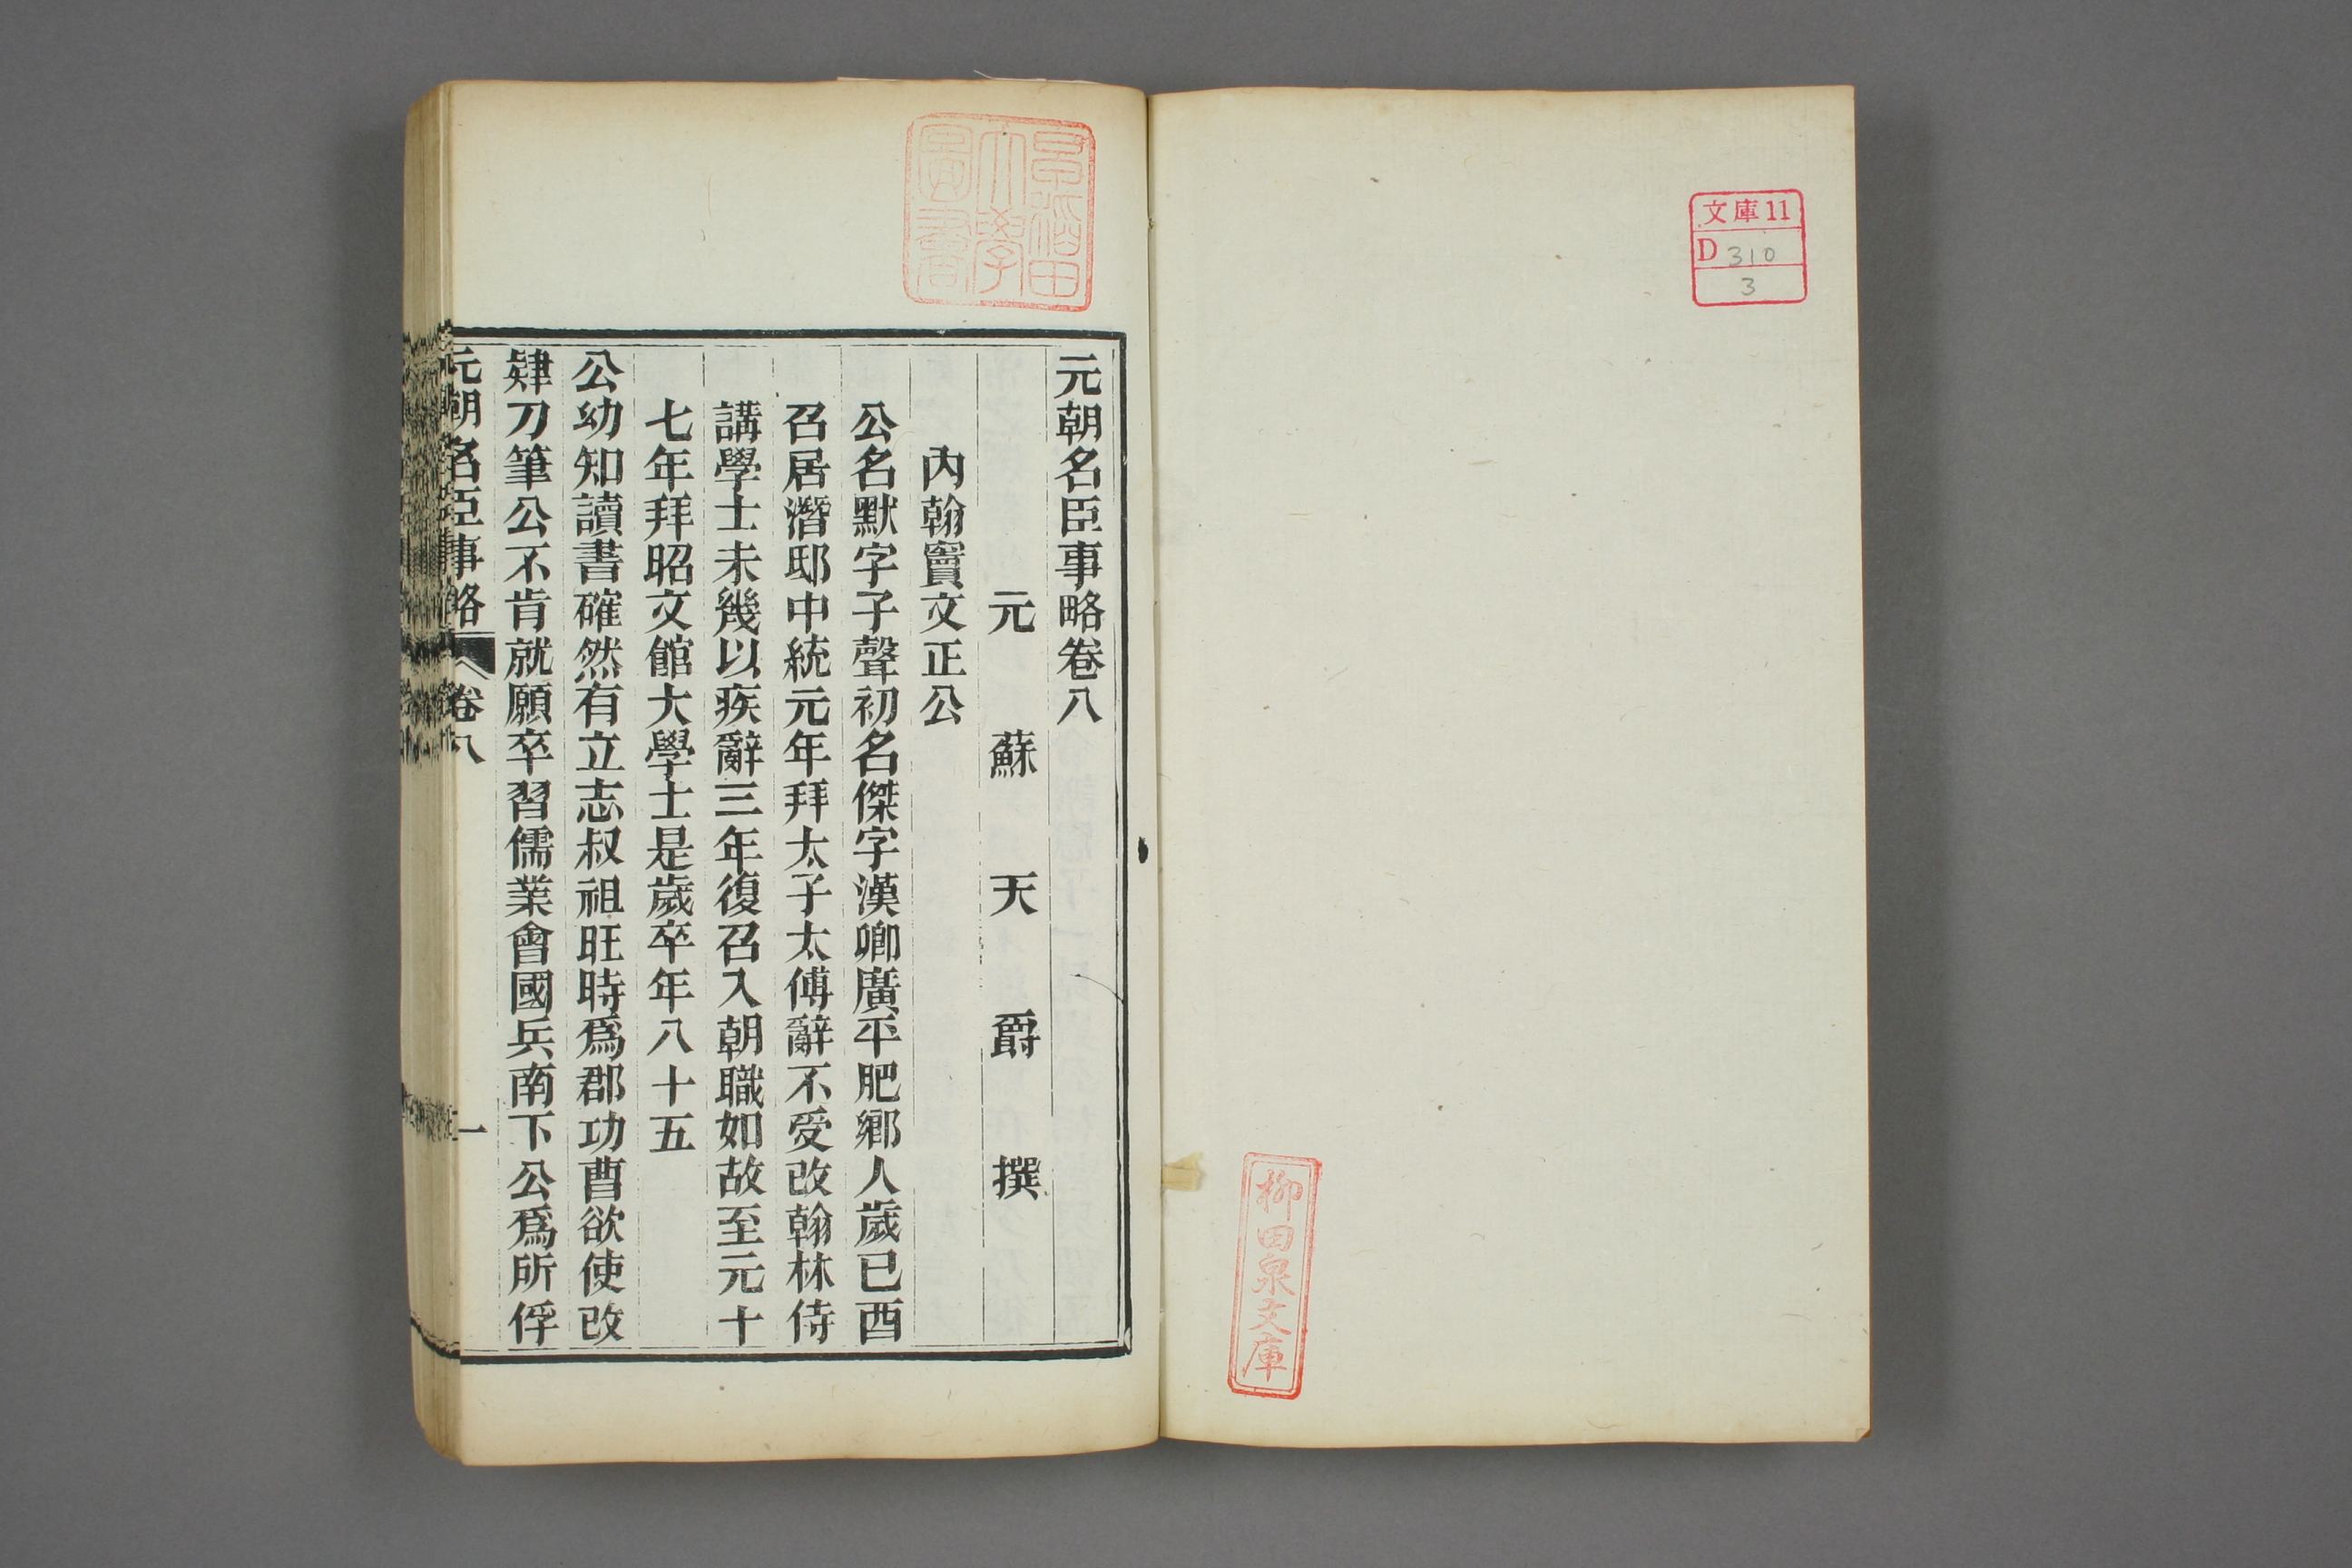 文庫11
D 310
3
柳田泉文庫
早稲田
大學
圖書
元朝名臣事略卷八
元 蘇 天 爵 撰
內翰竇文正公
公名默字子聲初名傑字漢卿廣平肥鄉人歲已酉
召居潛邸中統元年拜太子太傅辭不受改翰林侍
講學士未幾以疾辭三年復召入朝職如故至元十
七年拜昭文館大學士是歲卒年八十五
公幼知讀書確然有立志叔祖旺時爲郡功曹欲使改
肄刀筆公不肯就願卒習儒業會國兵南下公爲所俘
元朝名臣事略 卷八 一